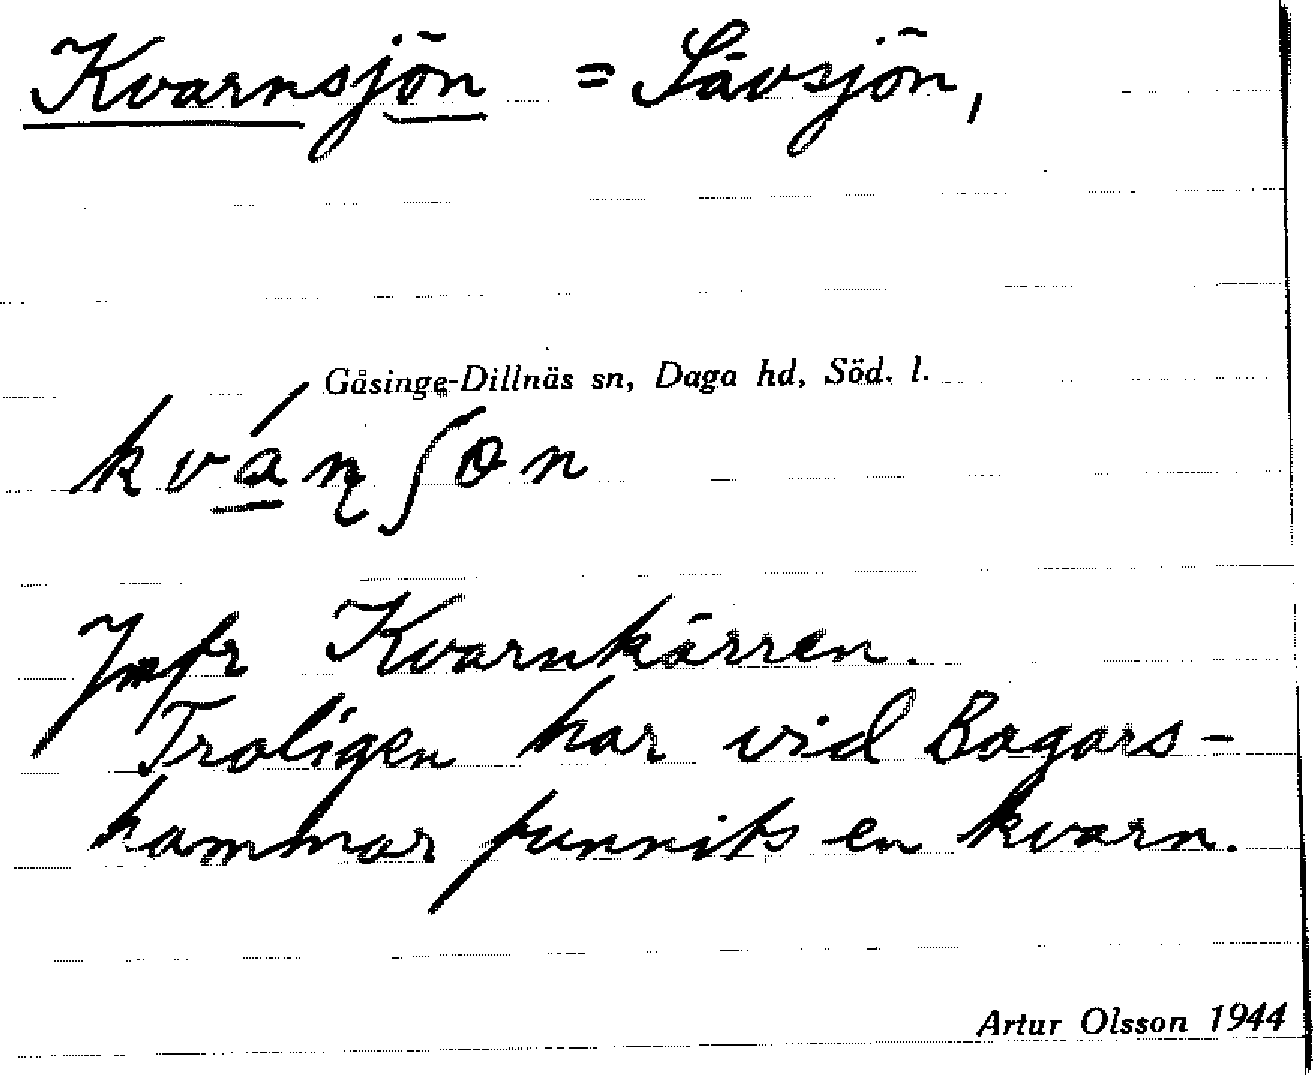 Kvarnsjön = Sävsjön,
Gåsinge-Dillnäs sn, Daga hd, Söd. l.
kvá̱ɳʃon
Jmfr Kvarnkärren.
Troligen har vid Bagars-
hammar funnits en kvarn.
Artur Olsson 1944